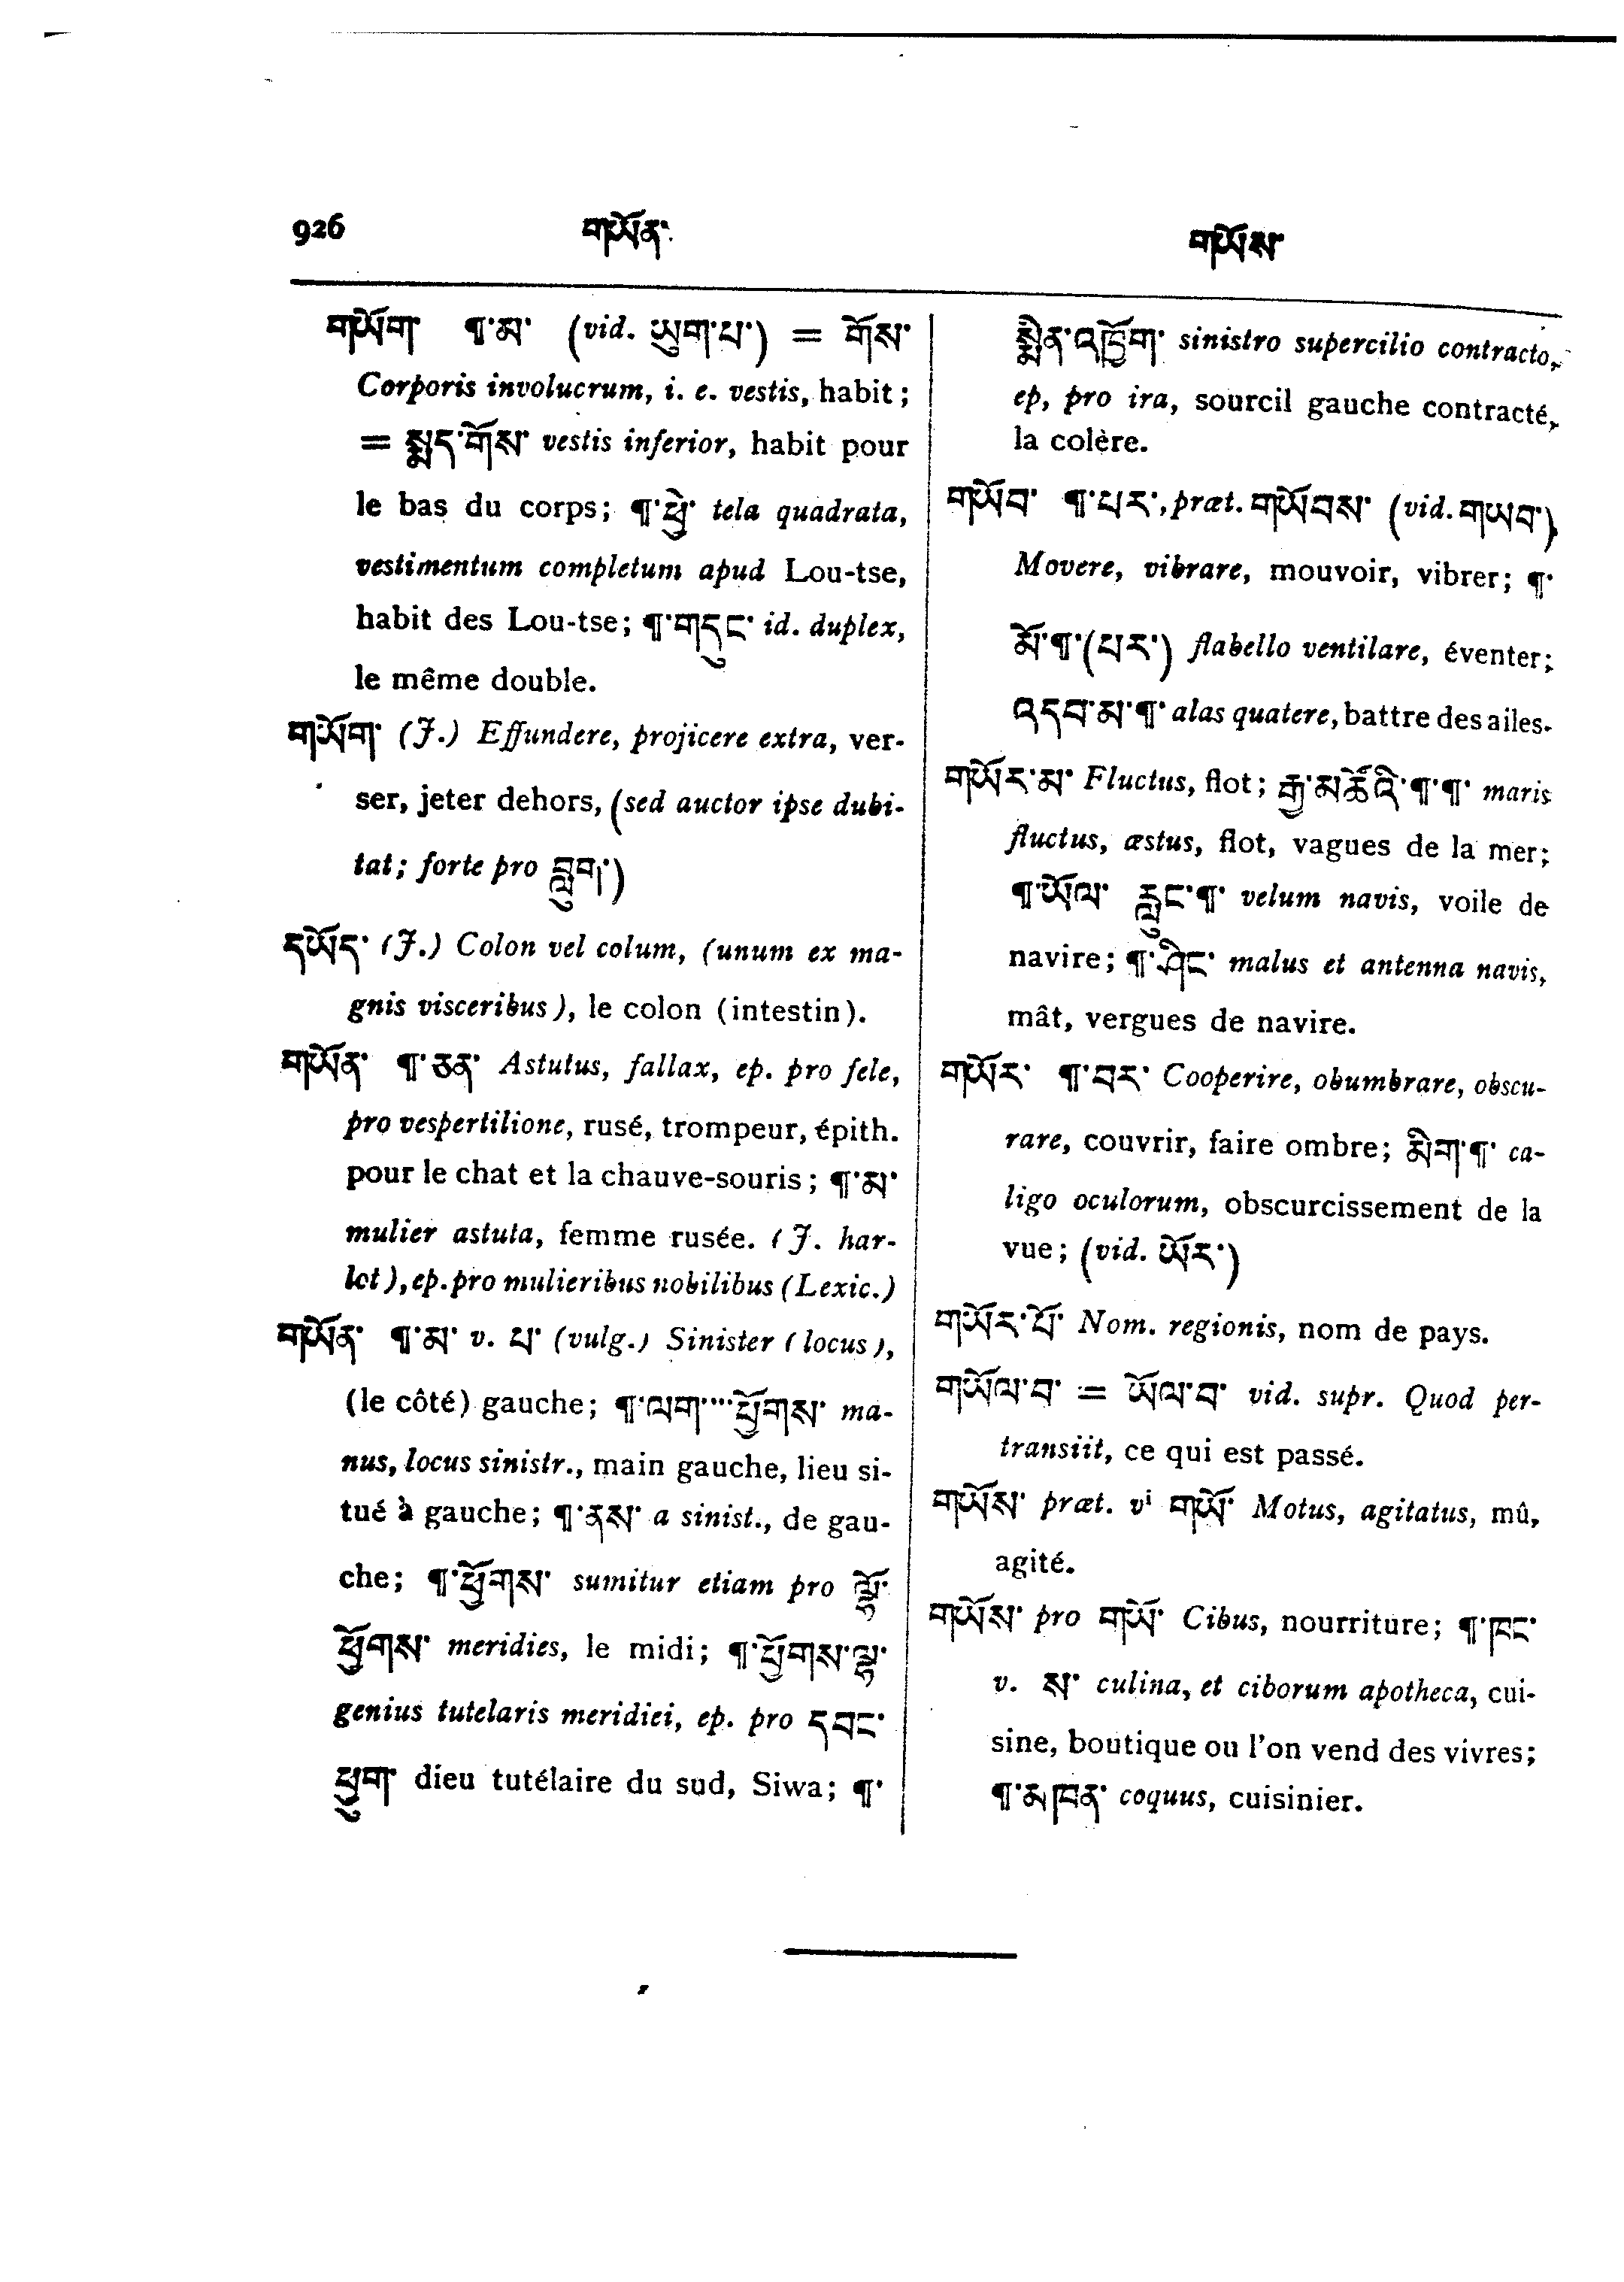 926 གཡོན་ གཡོས་
གཡོག་ ¶་མ་ (vid. ཡུག་པ་) = གོས་
Corporis involucrum, i. e. vestis, habit;
= སྨད་གོས་ vestis inferior, habit pour
le bas du corps; ¶་ཕྱེ་ tela quadrata,
vestimentum completum apud Lou-tse,
habit des Lou-tse; ¶་གདུང་ id. duplex,
le même double.
གཡོག་ (J.) Effundere, projicere extra, ver-
ser, jeter dehors, (sed auctor ipse dubi-
tat; forte pro བླུག་)
དཡོད་ (J.) Colon vel colum, (unum ex ma-
gnis visceribus), le colon (intestin).
གཡོན་ ¶་ཅན་ Astutus, fallax, ep. pro fele,
pro vespertilione, rusé, trompeur, épith.
pour le chat et la chauve-souris; ¶་མ་
mulier astuta, femme rusée. (J. har-
lot), ep. pro mulieribus nobilibus (Lexic.)
གཡོན་ ¶་མ་ v. པ་ (vulg.) Sinister (locus),
(le côté) gauche; ¶་ལག་་་་ཕྱོགས་ ma-
nus, locus sinistr., main gauche, lieu si-
tué à gauche; ¶་ནས་ a sinist., de gau-
che; ¶་ཕྱོགས་ sumitur etiam pro ལྷོ་
ཕྱོགས་ meridies, le midi; ¶་ཕྱོགས་ལྷ་
genius tutelaris meridiei, ep. pro དབང་
ཕྱུག་ dieu tutélaire du sud, Siwa; ¶་
སྨིན་འཁྱོག་ sinistro supercilio contracto,
ep, pro ira, sourcil gauche contracté,
la colère.
གཡོབ་ ¶་པར་, præt. གཡོབས་ (vid. གཡབ་)
Movere, vibrare, mouvoir, vibrer; ¶་
མོ་¶་(པར་) flabello ventilare, éventer;
འདབ་མ་¶་ alas quatere, battre des ailes.
གཡོར་མ་ Fluctus, flot; རྒྱ་མཚོའི་¶་¶་ maris
fluctus, æstus, flot, vagues de la mer;
¶་ཡོལ་ རླུང་¶་ velum navis, voile de
navire; ¶་ཤིང་ malus et antenna navis,
mât, vergues de navire.
གཡོར་ ¶་བར་ Cooperire, obumbrare, obscu-
rare, couvrir, faire ombre; མིག་¶་ ca-
ligo oculorum, obscurcissement de la
vue; (vid. ཡོར་)
གཡོར་པོ་ Nom. regionis, nom de pays.
གཡོལ་བ་ = ཡོལ་བ་ vid. supr. Quod per-
transiit, ce qui est passé.
གཡོས་ præt. vⁱ གཡོ་ Motus, agitatus, mû,
agité.
གཡོས་ pro གཡོ་ Cibus, nourriture; ¶་ཁང་
v. ས་ culina, et ciborum apotheca, cui-
sine, boutique ou l'on vend des vivres;
¶་མཁན་ coquus, cuisinier.